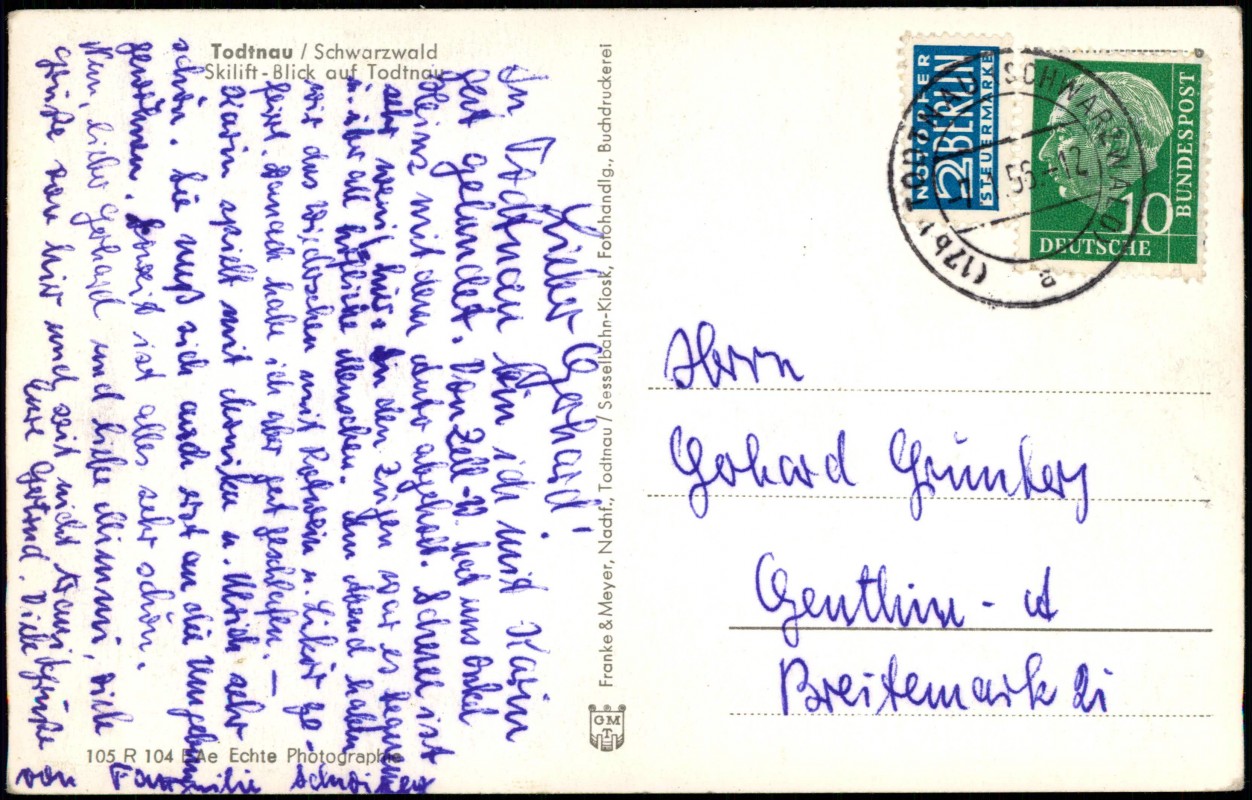 Todtnau / Schwarzwald
Skilift-Blick auf Todtnau
Lieber Gerhard!
In Todtnau bin ich mit Karin
gut gelandet. Von Zell-W. hat uns Onkel
Heinz mit dem Auto abgeholt. Schnee ist
sehr wenig hier. In den Zügen war es
u. überall höfliche Menschen. Am Abend haben
wir das Wiedersehen mit Rotwein u. Likör ge-
feiert. Danach habe ich aber gut geschlafen. —
Karin spielt mit Monika u. Ulrich sehr
schön. Sie muß sich auch erst an die Umgebung
gewöhnen. Soweit ist alles sehr schön.
Nun, lieber Gerhard und liebe Mimmi, viele
Grüße von hier und seit nicht traurig
Eure Gertrud. Viele Grüße
von Familie
105 R 104 Ae Echte Photographie
Franke & Meyer, Nachf., Todtnau / Sesselbahn-Kiosk, Fotohandlg., Buchdruckerei
GMT
NOTOPFER
2 BERLIN
STEUERMARKE
DEUTSCHE
BUNDESPOST
10
(17b) TODTNAU (SCHWARZWALD)
56.-12
a
Herrn
Gerhard Grünberg
Genthin - A
Breitemark 2i